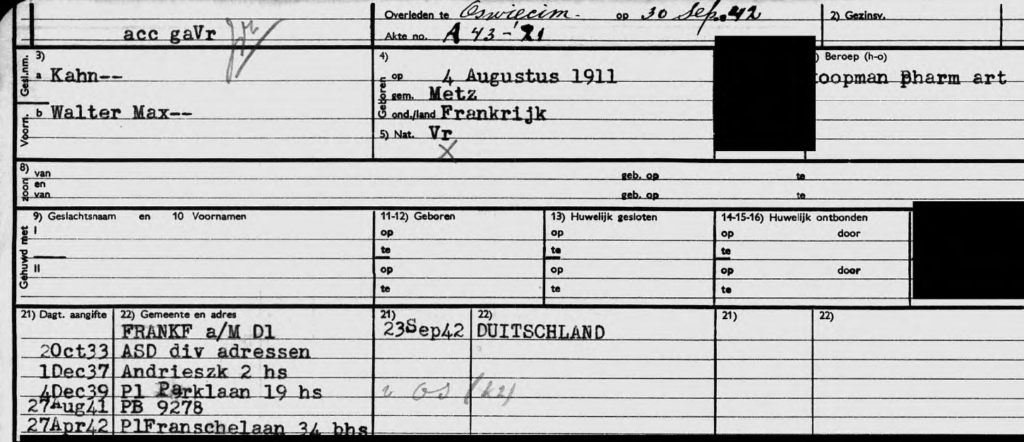 Overleden te Oswiecim. op 30 Sep. 42
2) Gezinsv.
acc gaVr
Akte no. A 43-'21
3)
Gesl.nm.
a Kahn--
Voorn.
b Walter Max--
4)
Geboren
op 4 Augustus 1911
gem. Metz
ond./land Frankrijk
5) Nat. Vr
X
) Beroep (h-o)
oopman Pharm art
8)
zoon
van geb. op te
en
van geb. op te
Gehuwd met
9) Geslachtsnaam en 10 Voornamen
11-12) Geboren
13) Huwelijk gesloten
14-15-16) Huwelijk ontbonden
I op op op door
te te te
II op op op door
te te te
21) Dagt. aangifte 22) Gemeente en adres 21) 22) 21) 22)
FRANKF a/M Dl 23Sep42 DUITSCHLAND
2Oct33 ASD div adressen
1Dec37 Andrieszk 2 hs
4Dec39 Pl Parklaan 19 hs
27Aug41 PB 9278
27Apr42 PlFranschelaan 34 bhs